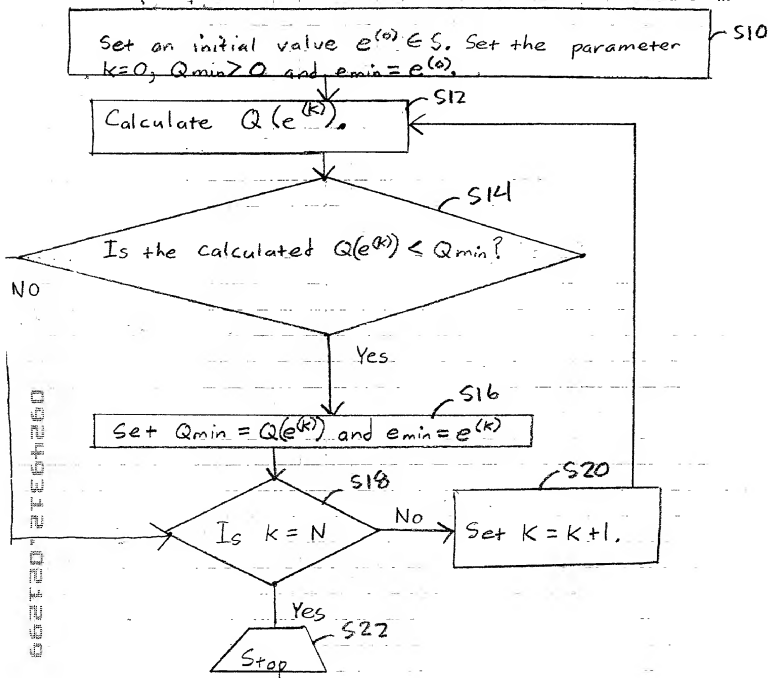 Set an initial value e^(0) ∈ S. Set the parameter
k=0, Qmin>0 and emin = e^(0).
S10
Calculate Q(e^(k)).
S12
Is the calculated Q(e^(k)) < Qmin?
S14
NO
Yes
Set Qmin = Q(e^(k)) and emin = e^(k)
S16
Is k = N
S18
No
Set K = k+1.
S20
Yes
Stop
S22
09249312.021299